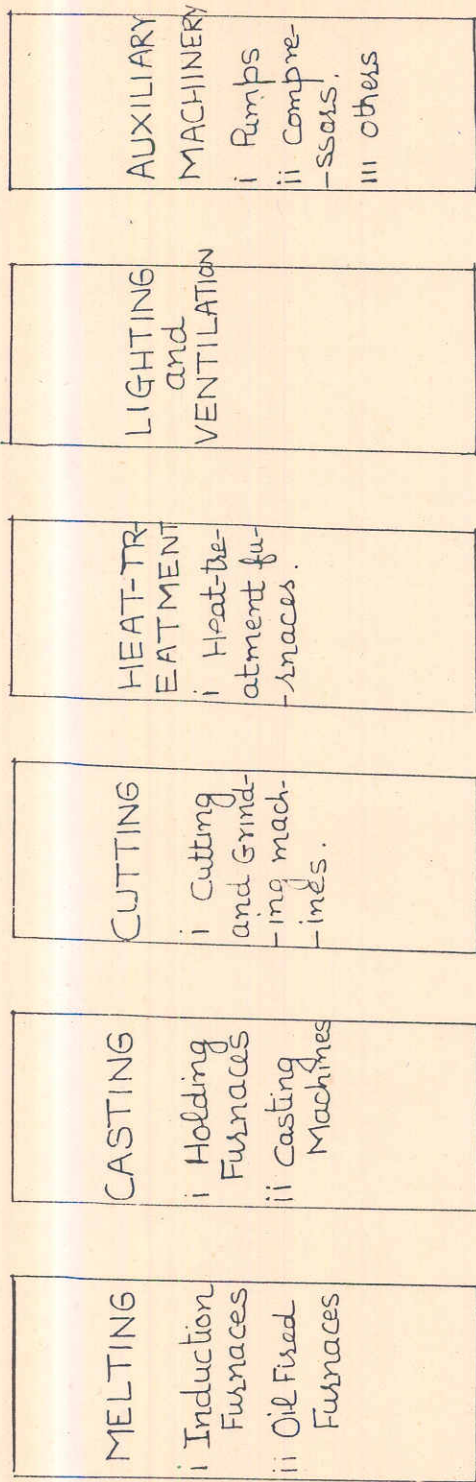 MELTING
i Induction
Furnaces
ii Oil Fired
Furnaces
CASTING
i Holding
Furnaces
ii Casting
Machines
CUTTING
i Cutting
and Grind-
-ing mach-
-ines.
HEAT-TR-
EATMENT
i Heat-tre-
atment fu-
-rnaces.
LIGHTING
and
VENTILATION
AUXILIARY
MACHINERY
i Pumps
ii Compre-
-ssors.
iii others